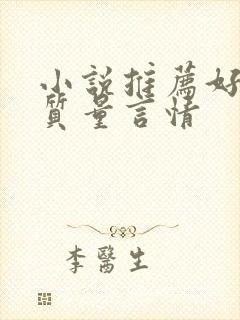 小説推薦好
質量言情
李醫生